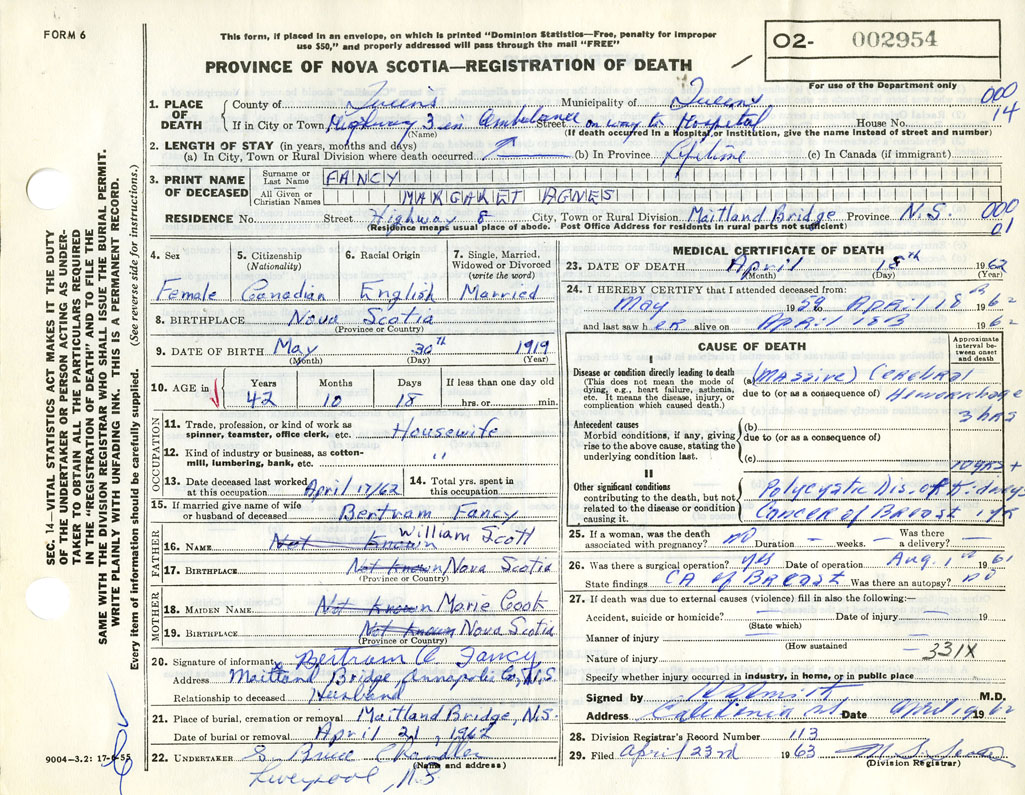 FORM 6
This form, if placed in an envelope, on which is printed "Dominion Statistics—Free, penalty for improper
use $50," and properly addressed will pass through the mail "FREE"
02- 002954
PROVINCE OF NOVA SCOTIA—REGISTRATION OF DEATH
For use of the Department only
000
14
1. PLACE OF DEATH County of Queens Municipality of Queens
If in City or Town Highway 3 in Ambulance Street on way to Hospital House No.
(Name) (If death occurred in a Hospital or Institution, give the name instead of street and number)
2. LENGTH OF STAY (in years, months and days)
(a) In City, Town or Rural Division where death occurred (b) In Province Lifetime (c) In Canada (if immigrant)
3. PRINT NAME OF DECEASED Surname or Last Name FANCY
All Given or Christian Names MARGARET AGNES
RESIDENCE No. Street Highway 8 City, Town or Rural Division Maitland Bridge Province N.S. 000
01
(Residence means usual place of abode. Post Office Address for residents in rural parts not sufficient)
4. Sex 5. Citizenship (Nationality) 6. Racial Origin 7. Single, Married, Widowed or Divorced (write the word)
Female Canadian English Married
8. BIRTHPLACE Nova Scotia
(Province or Country)
9. DATE OF BIRTH May 30th 1919
(Month) (Day) (Year)
10. AGE in Years Months Days If less than one day old
42 10 18 hrs. or min.
OCCUPATION
11. Trade, profession, or kind of work as
spinner, teamster, office clerk, etc. Housewife
12. Kind of industry or business, as cotton-
mill, lumbering, bank, etc. "
13. Date deceased last worked
at this occupation April 17/62
14. Total yrs. spent in
this occupation
15. If married give name of wife
or husband of deceased Bertram Fancy
FATHER
16. NAME Not Known William Scott
17. BIRTHPLACE Not Known Nova Scotia
(Province or Country)
MOTHER
18. MAIDEN NAME Not Known Marie Cook
19. BIRTHPLACE Not Known Nova Scotia
(Province or Country)
20. Signature of informant Bertram O Fancy
Address Maitland Bridge, Annapolis Co, N.S.
Relationship to deceased Husband
21. Place of burial, cremation or removal Maitland Bridge, N.S.
Date of burial or removal April 21, 1962
22. UNDERTAKER S. Bruce Chandler
(Name and address)
Liverpool, N.S
MEDICAL CERTIFICATE OF DEATH
23. DATE OF DEATH April 18th 1962
(Month) (Day) (Year)
24. I HEREBY CERTIFY that I attended deceased from:
May 1959 to April 18th 1962
and last saw her alive on April 18th 1962
CAUSE OF DEATH
Approximate interval between onset and death
I
Disease or condition directly leading to death
(This does not mean the mode of
dying, e.g., heart failure, asthenia,
etc. It means the disease, injury, or
complication which caused death.)
(a) (Massive) Cerebral
due to (or as a consequence of) Hemorrhage
3 hrs
Antecedent causes
Morbid conditions, if any, giving
rise to the above cause, stating the
underlying condition last.
(b)
due to (or as a consequence of)
(c)
II
Other significant conditions
contributing to the death, but not
related to the disease or condition
causing it.
10 yrs +
Polycystic Dis. of Kidneys
Cancer of Breast 1 yr
25. If a woman, was the death
associated with pregnancy? no Duration — weeks. Was there
a delivery? —
26. Was there a surgical operation? yes Date of operation Aug. 1961
State findings CA of Breast Was there an autopsy? no
27. If death was due to external causes (violence) fill in also the following:—
Accident, suicide or homicide? Date of injury 19
(State which)
Manner of injury
(How sustained
Nature of injury 331X
Specify whether injury occurred in industry, in home, or in public place
Signed by Smith M.D.
Address Caledonia Date April 1962
28. Division Registrar's Record Number 113
29. Filed April 23rd 1963
(Division Registrar)
SEC. 14—VITAL STATISTICS ACT MAKES IT THE DUTY
OF THE UNDERTAKER OR PERSON ACTING AS UNDER-
TAKER TO OBTAIN ALL THE PARTICULARS REQUIRED
IN THE "REGISTRATION OF DEATH" AND TO FILE THE
SAME WITH THE DIVISION REGISTRAR WHO SHALL ISSUE THE BURIAL PERMIT.
WRITE PLAINLY WITH UNFADING INK. THIS IS A PERMANENT RECORD.
Every item of information should be carefully supplied. (See reverse side for instructions.)
9004—3.2: 17-6-55